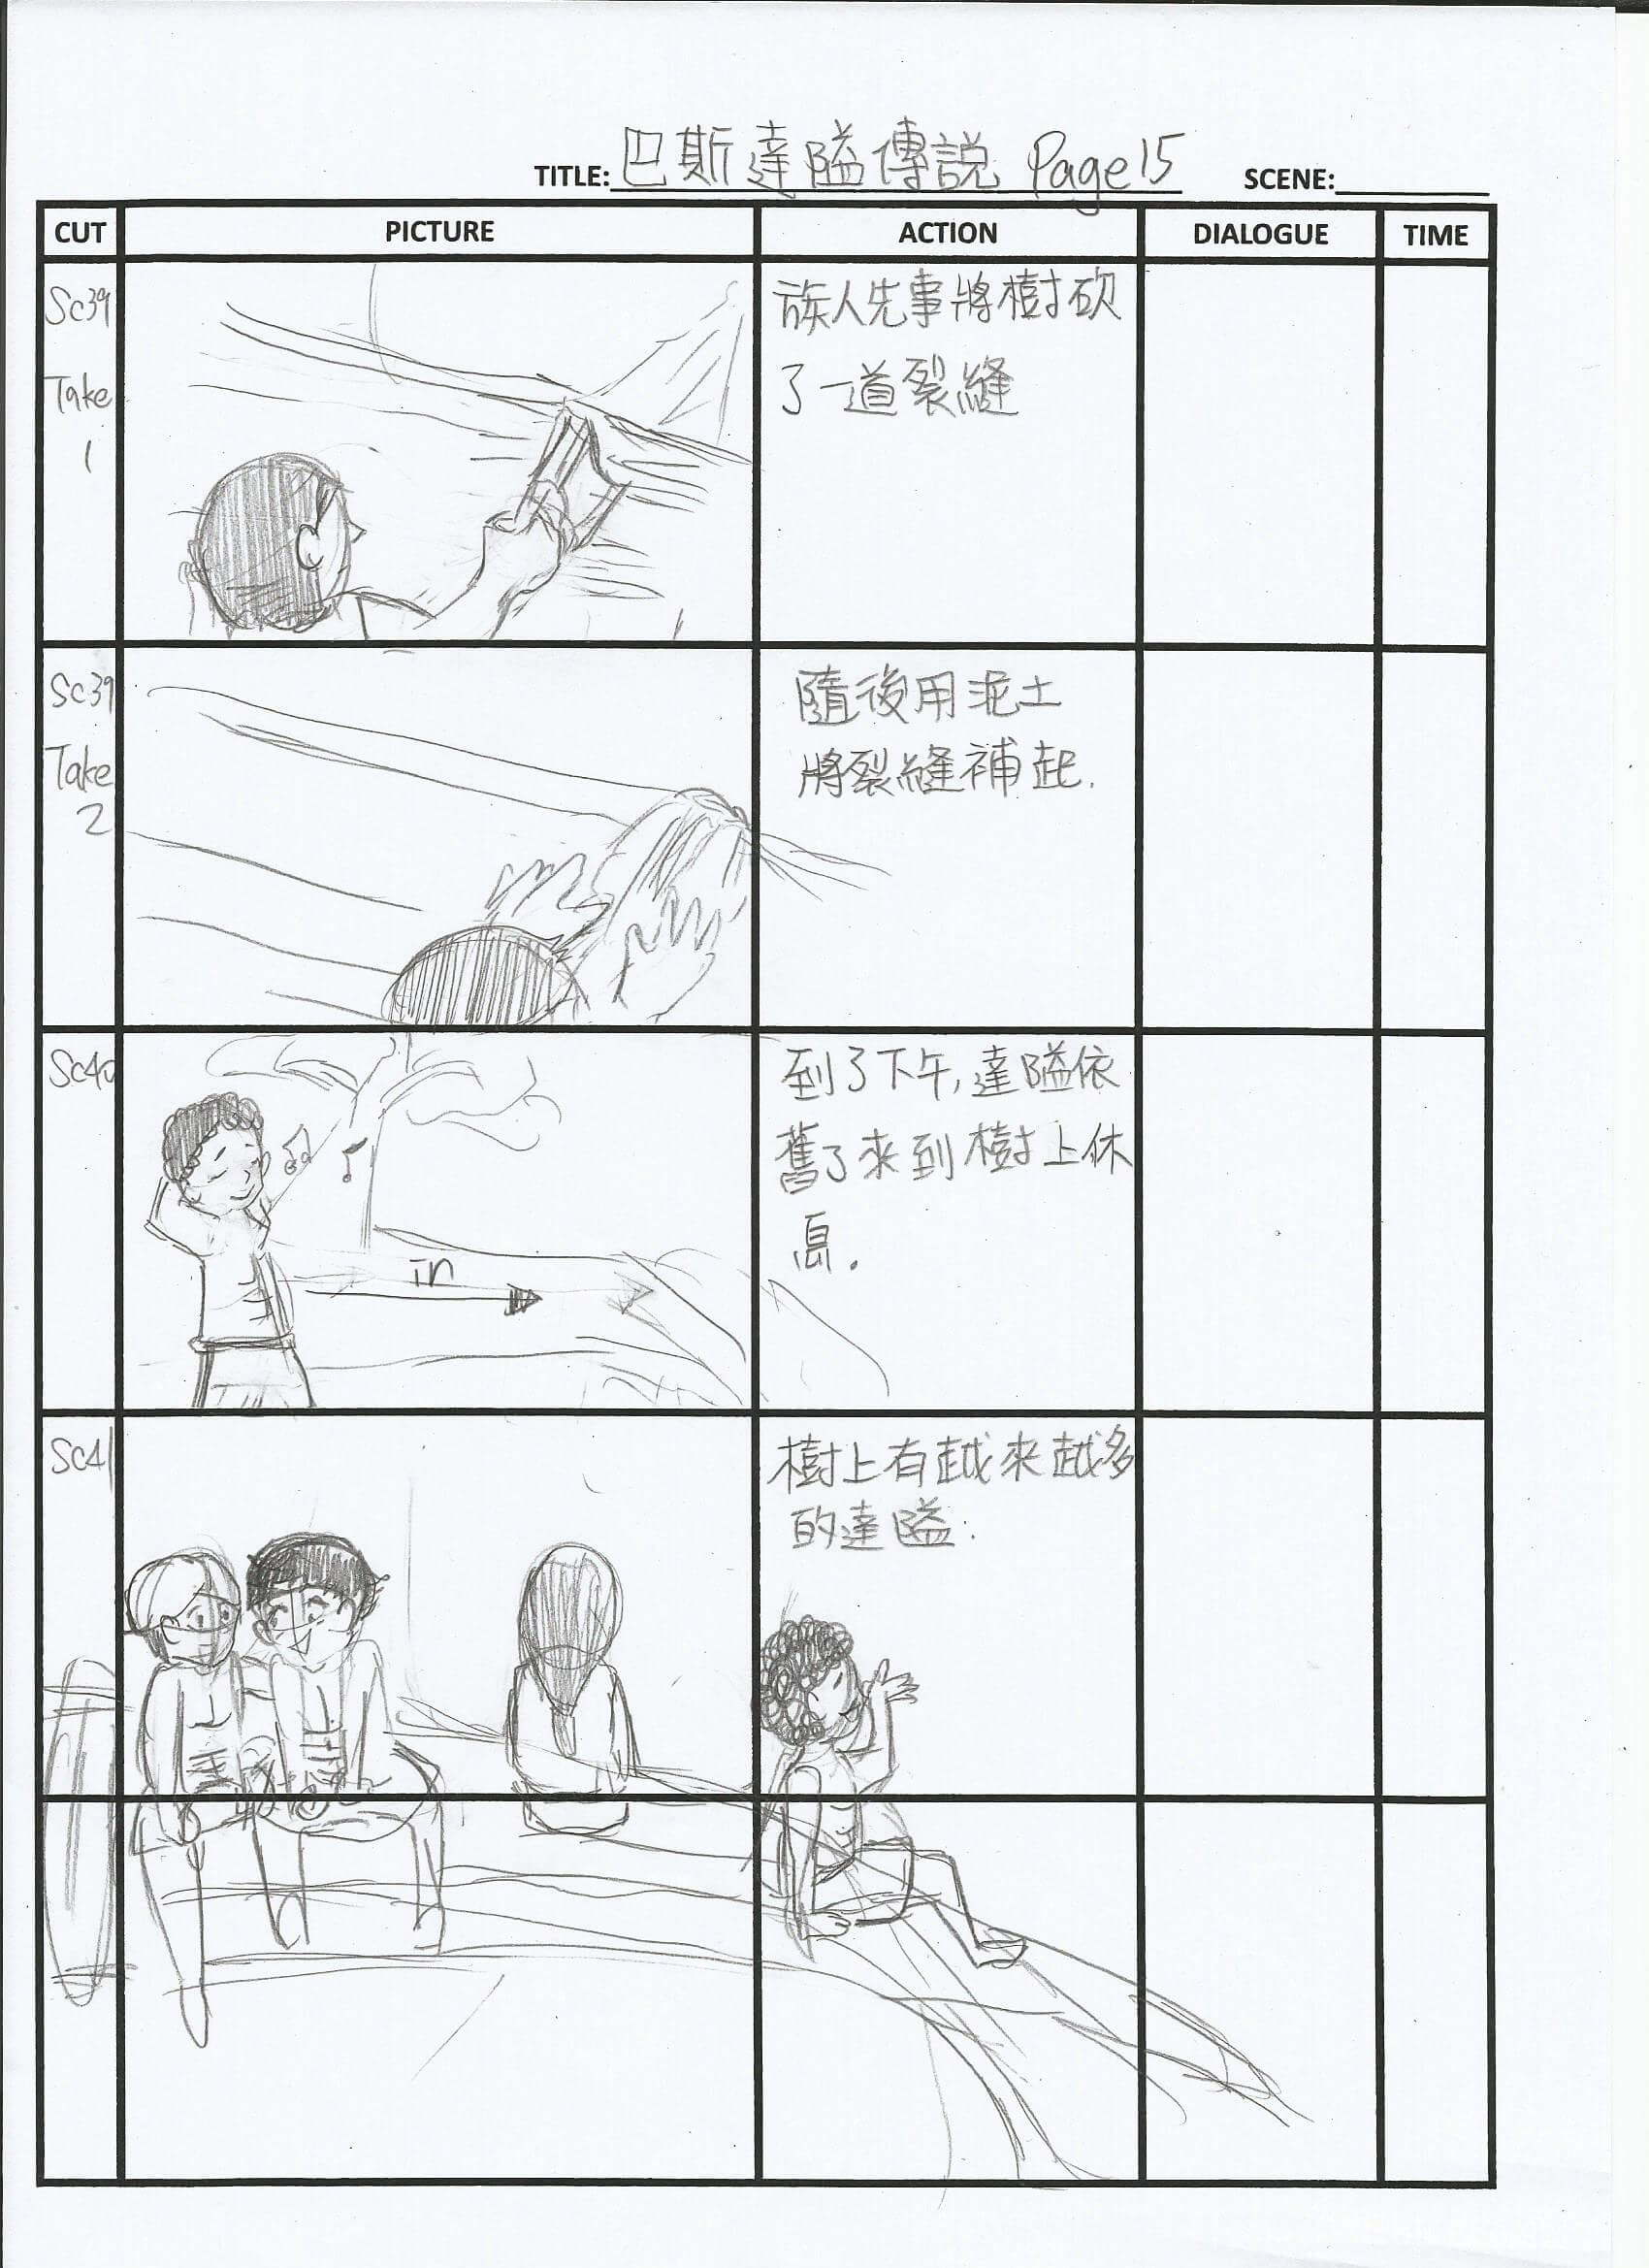 TITLE: 巴斯達隘傳說 Page 15 SCENE:
CUT PICTURE ACTION DIALOGUE TIME
Sc39
Take
1
族人先事將樹砍
了一道裂縫
Sc39
Take
2
隨後用泥土
將裂縫補起.
Sc40
in
到了下午,達隘依
舊了來到樹上休
息.
Sc41
樹上有越來越多
的達隘.